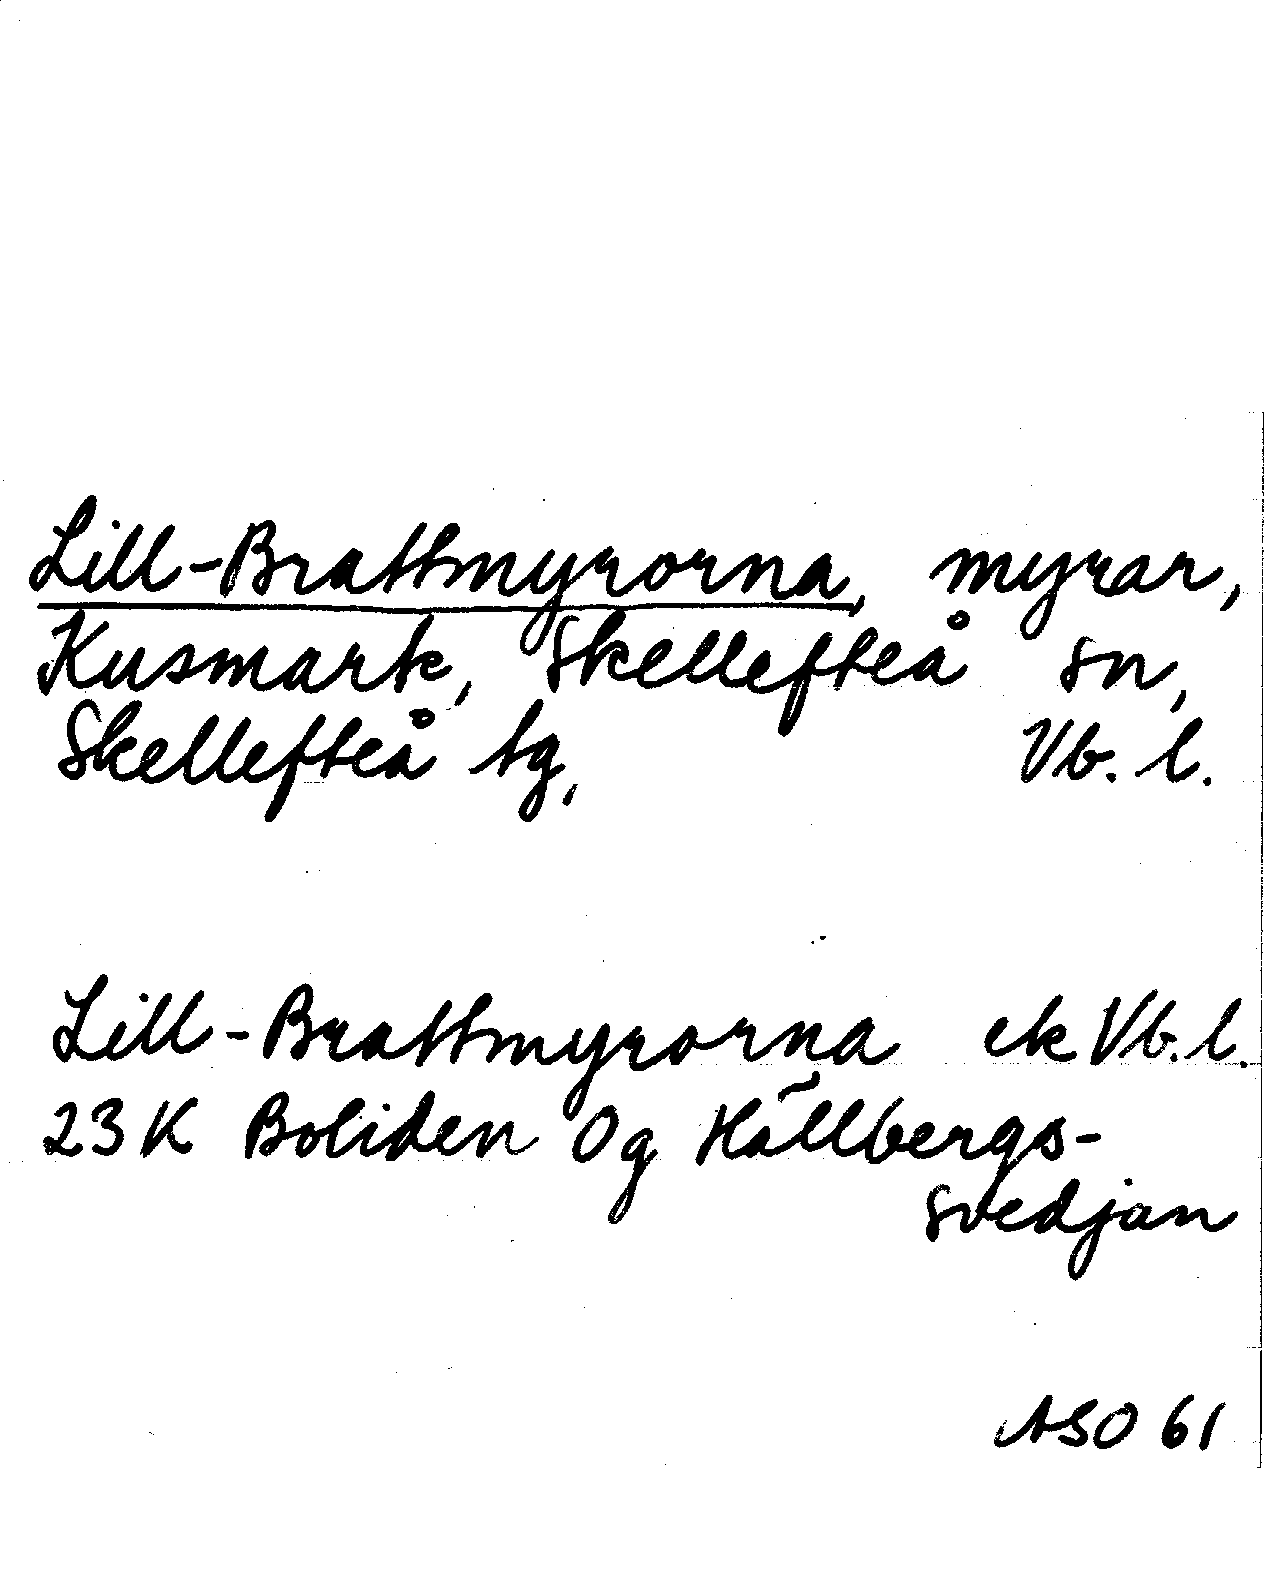 Lill-Brattmyrorna, myrar,
Kusmark, Skellefteå sn,
Skellefteå tg, Vb. l.
Lill-Brattmyrorna ek Vb. l.
23 K Boliden Og Hällbergs-
svedjan
ASO 61